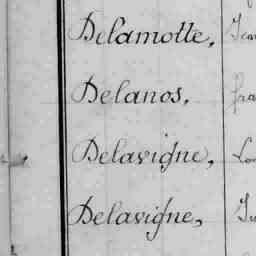 Delamotte,
Delanos,
Delavigne,
Delavigne,